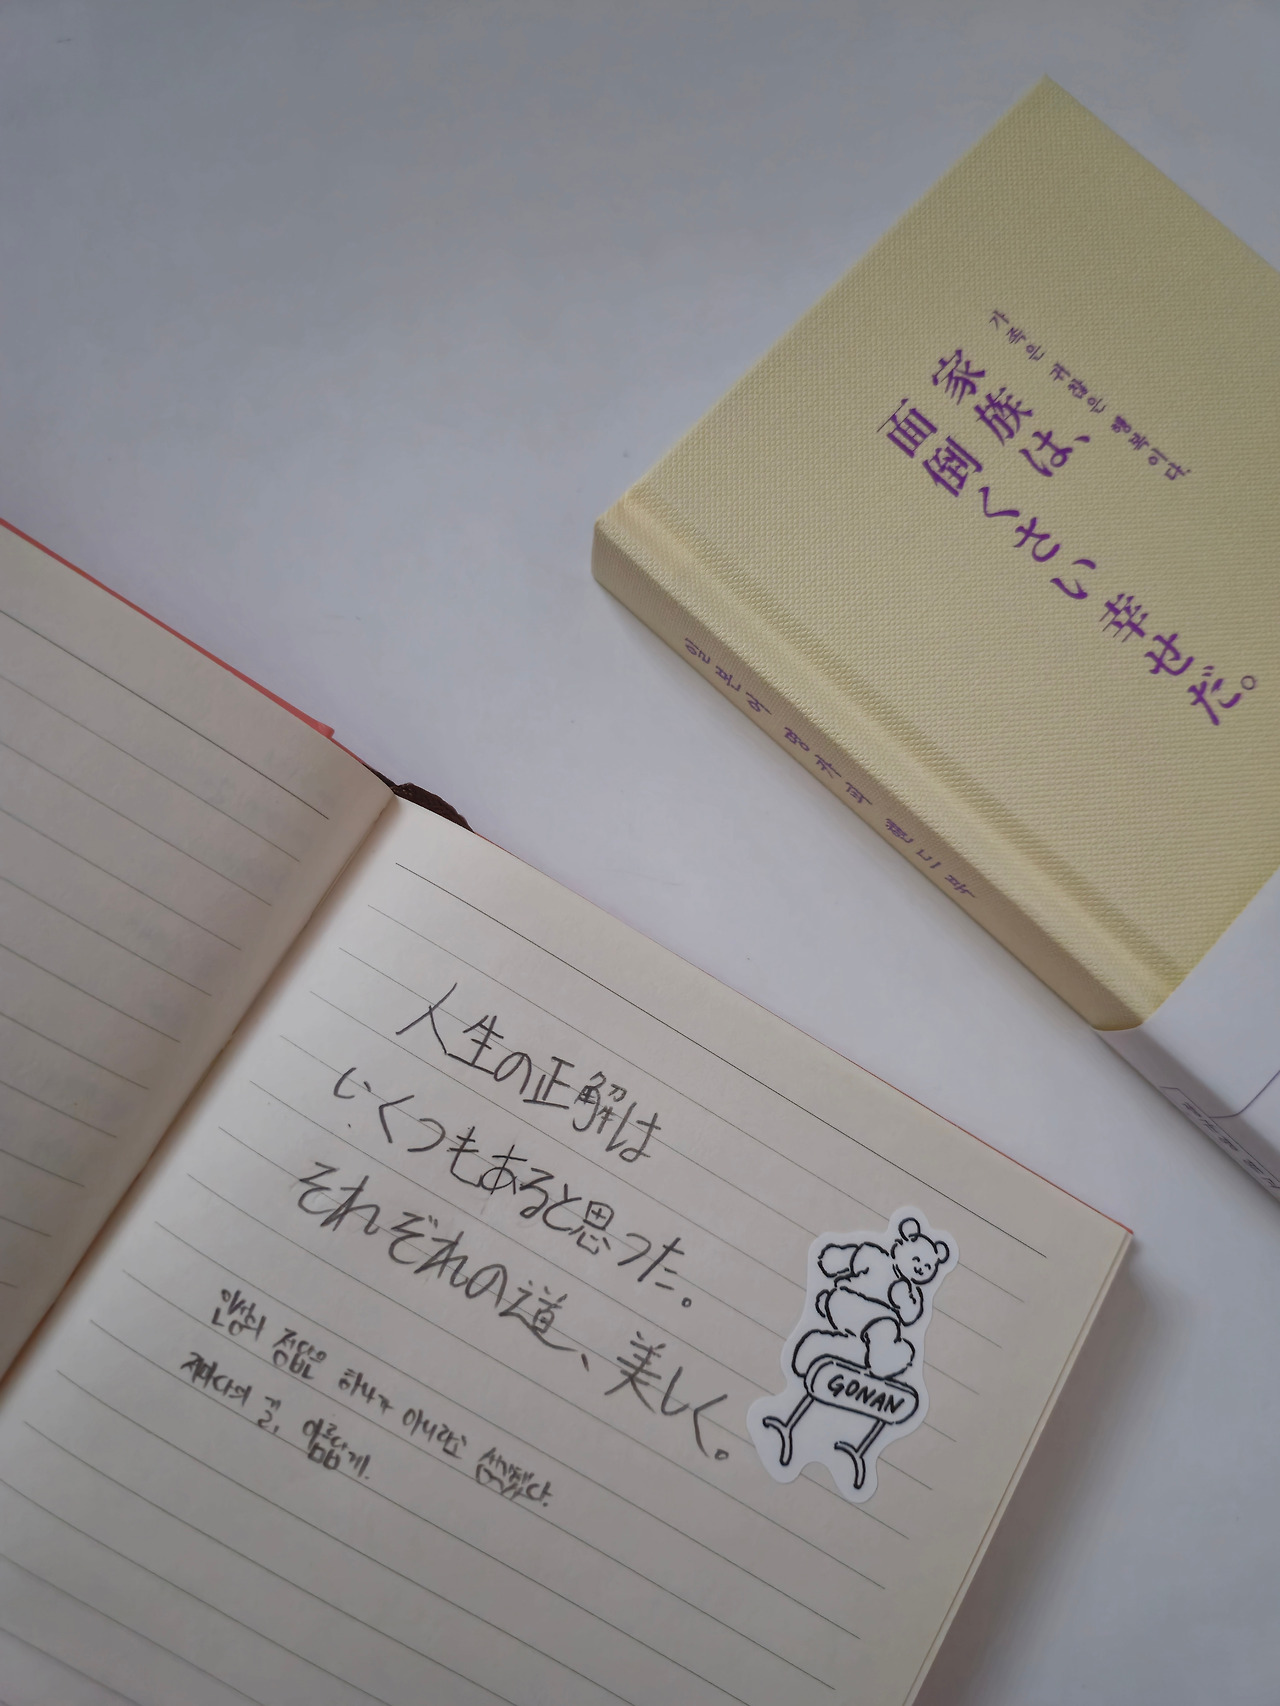 가족은 귀찮은 행복이다.
家族は、
面倒くさい幸せだ。
人生の正解は
いくつもあると思った。
それぞれの道、美しく。
인생의 정답은 하나가 아니라고 생각했다.
저마다의 길, 아름답게.
GONAN